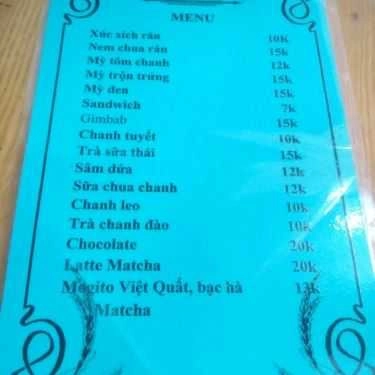 MENU
Xúc xích rán 10K
Nem chua rán 15k
Mỳ tôm chanh 12k
Mỳ trộn trứng 15k
Mỳ đen 15k
Sandwich 7k
Gimbab 15k
Chanh tuyết 10k
Trà sữa thái 15k
Sâm dứa 12k
Sữa chua chanh 12k
Chanh leo 10k
Trà chanh đào 10k
Chocolate 20k
Latte Matcha 20k
Mogito Việt Quất, bạc hà 13k
Matcha